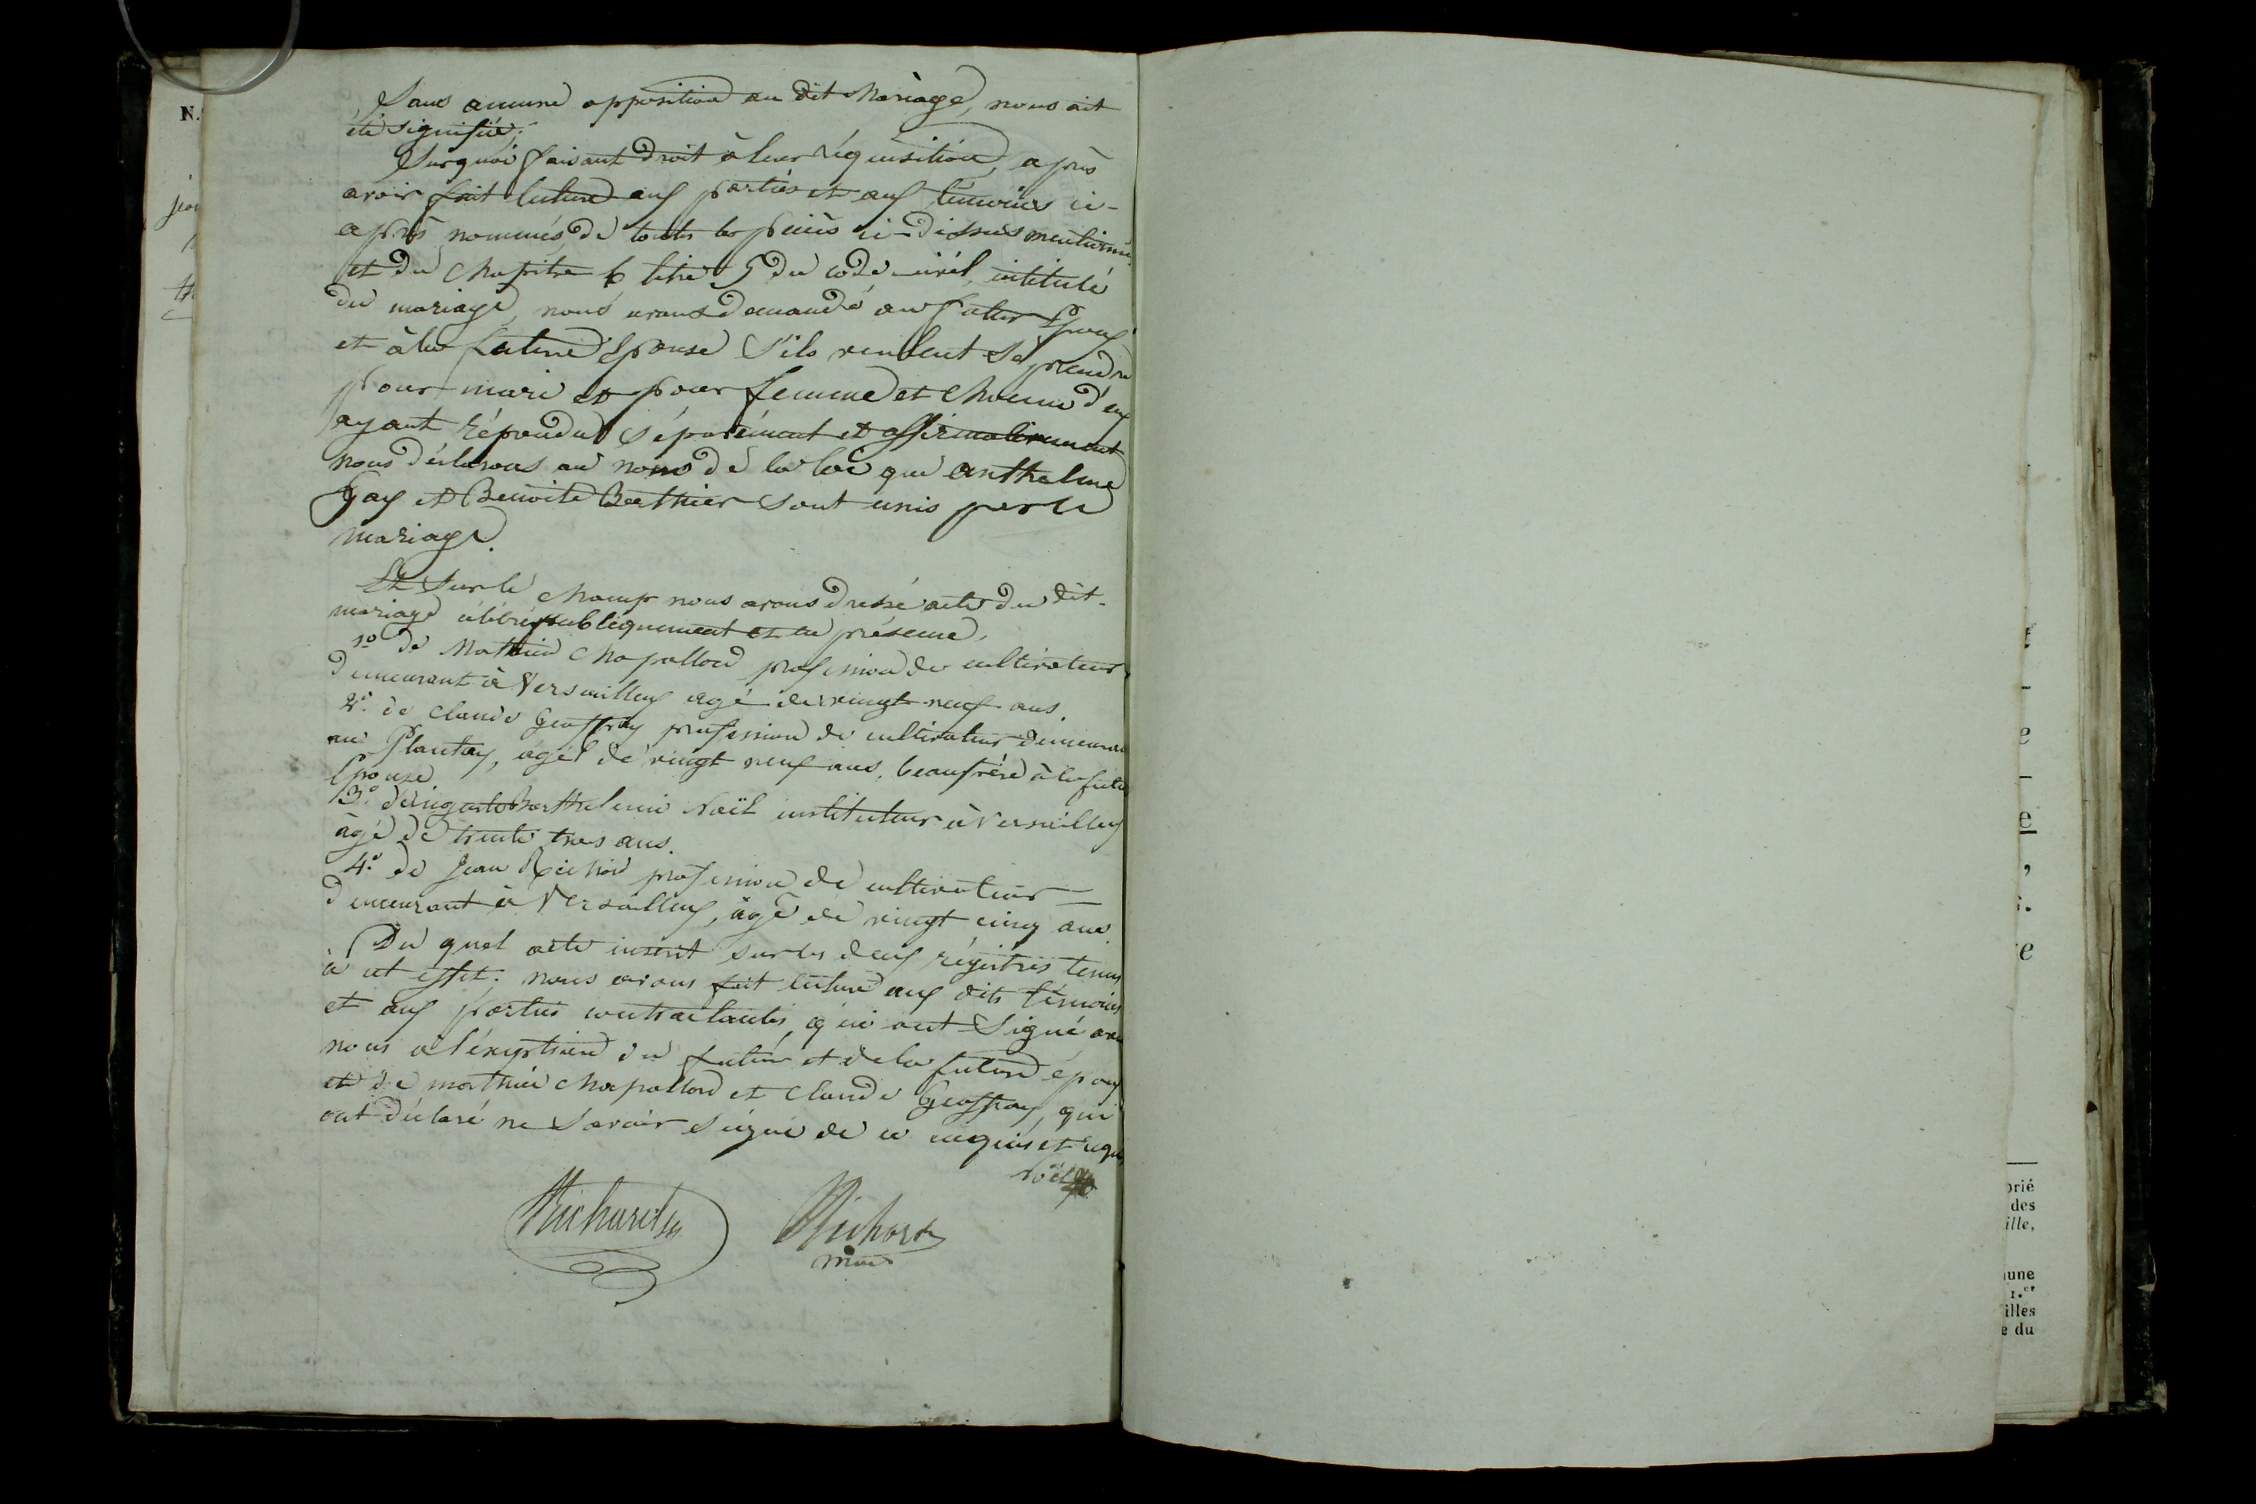 Sans aucune opposition au dit Mariage, nous ait
été signifiée;
Surquoi faisant droit à leur réquisition, après
avoir fait lecture aux parties et aux témoins ci-
après nommés, de toutes les pieces ci-dessus mentionné
et du Chapitre 6 titre 5 du code civil, intitulé
du mariage, nous avons demandé au futur Epoux
et à la future Epouse s'ils veulent se prendre
pour mari et pour femme et chacun d'eux
ayant répondu séparément et affirmativement
nous déclarons au nom de la loi que anthelme
Gay et Benoite Berthier sont unis par le
mariage.
Et sur le champ nous avons dressé acte du dit
mariage célébré publiquement et en présence,
1.º de Mathieu Chapalland profession de cultivateur,
demeurant à Versailleux agé de vingt neuf ans.
2.º de Claude Geoffray profession de cultivateur demeurant
au Plantay, agé de vingt neuf ans, beaufrére à la future
Epouse
3.º de Barthelemi Noël instituteur à Versailleux
âgé de trente trois ans.
4.º de Jean Richard profession de cultivateur
demeurant à Versailleux, âgé de vingt cinq ans.
Du quel acte inscrit sur les deux régistres tenus
à cet effet; nous avons fait lecture aux dits témoins
et aux parties contractantes, qui ont signé avec
nous à l'éxeption du futur et de la future époux
et de mathieu Chapalland et Claude Geoffray, qui
ont déclaré ne savoir signé de ce enquis et requis
Noël
Richard
Richard
Maire
N.
prié
des
ille,
une
1.er
illes
e du